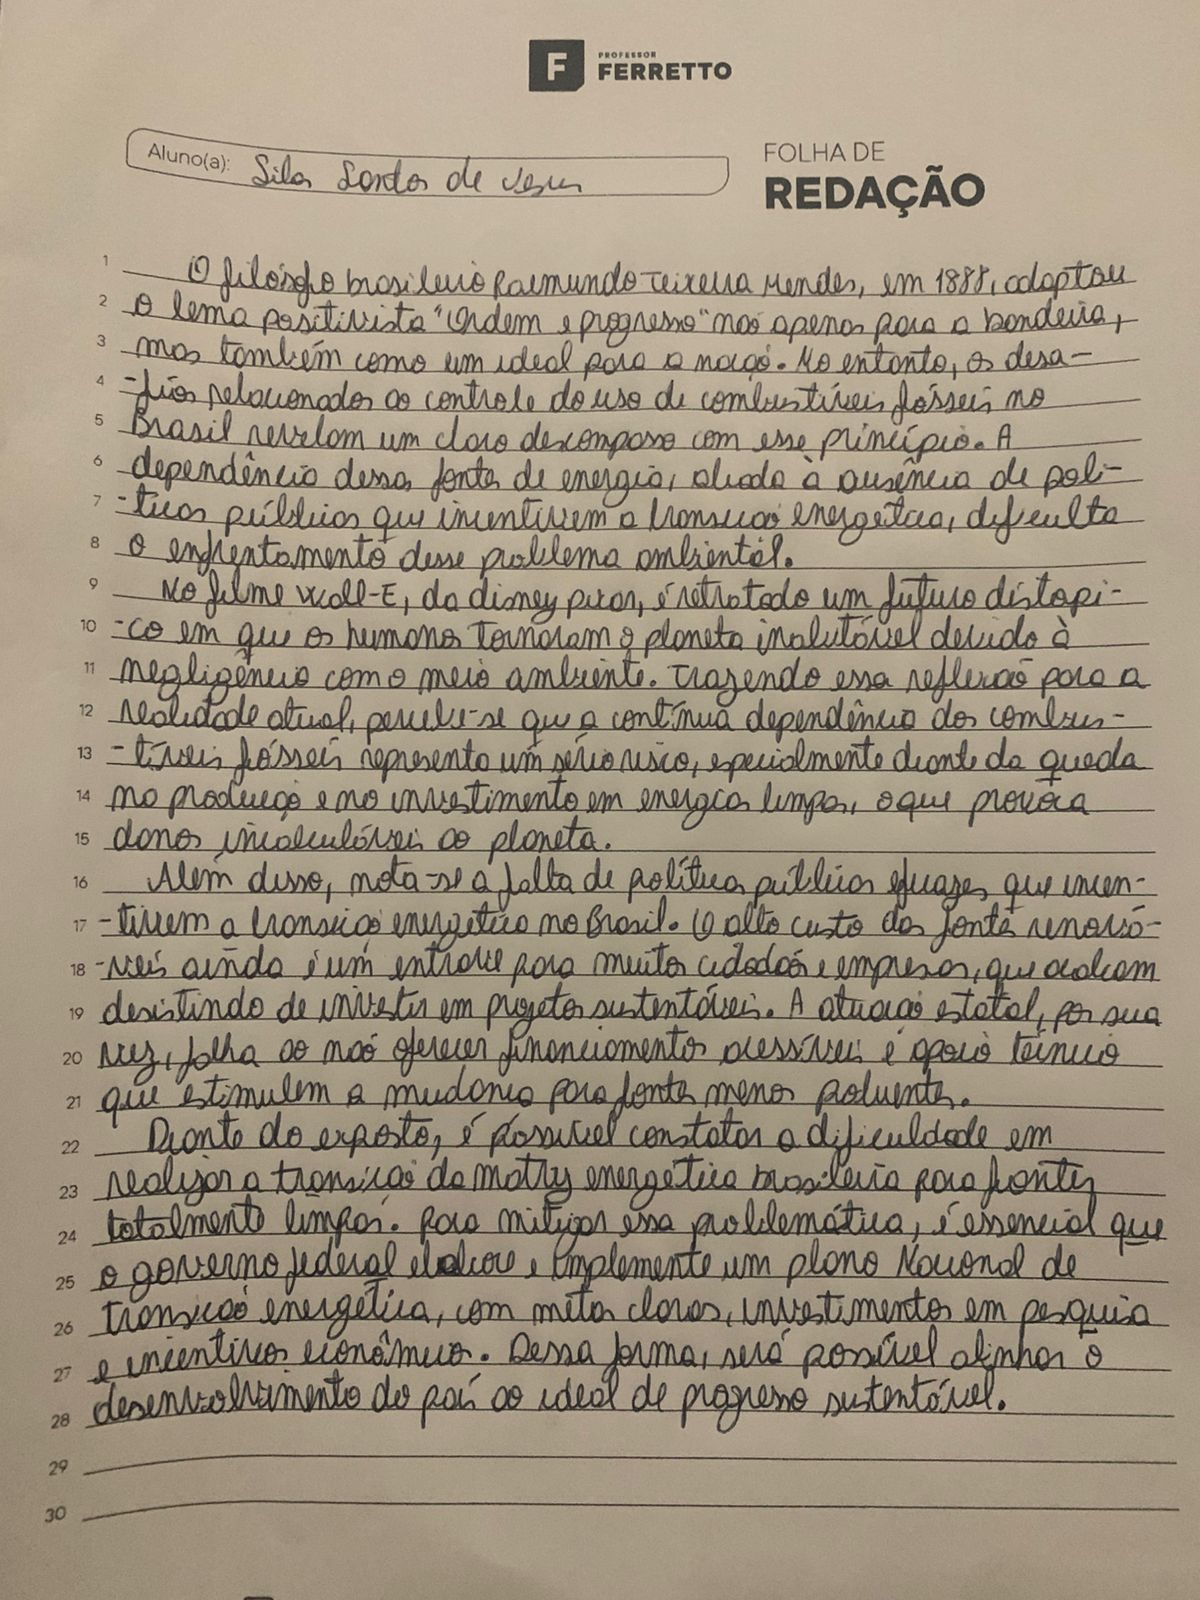 PROFESSOR
FERRETTO
Aluno(a): Silas Santos de Jesus
FOLHA DE
REDAÇÃO
1 O filósofo brasileiro Raimundo Teixeira Mendes, em 1888, adaptou
2 o lema positivista "Ordem e progresso" não apenas para a bandeira,
3 mas também como um ideal para a nação. No entanto, os desa-
4 -fios relacionados ao controle do uso de combustíveis fósseis no
5 Brasil revelam um claro descompasso com esse princípio. A
6 dependência dessa fonte de energia, aliada à ausência de polí-
7 -ticas públicas que incentivem a transição energética, dificulta
8 o enfrentamento desse problema ambiental.
9 No filme Wall-E, da disney pixar, é retratado um futuro distópi-
10 -co em que os humanos tornaram o planeta inabitável devido à
11 negligência com o meio ambiente. Trazendo essa reflexão para a
12 realidade atual, percebe-se que a contínua dependência dos combus-
13 -tíveis fósseis representa um sério risco, especialmente diante da queda
14 na produção e no investimento em energias limpas, o que provoca
15 danos incalculáveis ao planeta.
16 Além disso, nota-se a falta de políticas públicas eficazes que incen-
17 -tivem a transição energética no Brasil. O alto custo das fontes renová-
18 -veis ainda é um entrave para muitos cidadãos e empresas, que acabam
19 desistindo de investir em projetos sustentáveis. A atuação estatal, por sua
20 vez, falha ao não oferecer financiamentos acessíveis e apoio técnico
21 que estimulem a mudança para fontes menos poluentes.
22 Diante do exposto, é possível constatar a dificuldade em
23 realizar a transição da matriz energética brasileira para fontes
24 totalmente limpas. Para mitigar essa problemática, é essencial que
25 o governo federal elabore e implemente um plano Nacional de
26 transição energética, com metas claras, investimentos em pesquisa
27 e incentivos econômicos. Dessa forma, será possível alinhar o
28 desenvolvimento do país ao ideal de progresso sustentável.
29
30